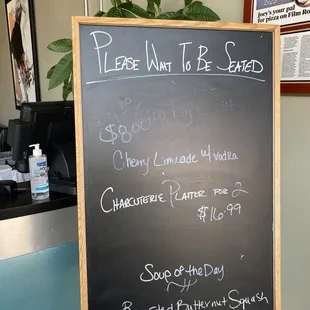 Please Wait To Be Seated
$8
Cherry Limeade w/ vodka
Charcuterie Platter for 2
$16.99
Soup of the Day
Roasted Butternut Squash
Joey's your pal
for pizza on Film Ro